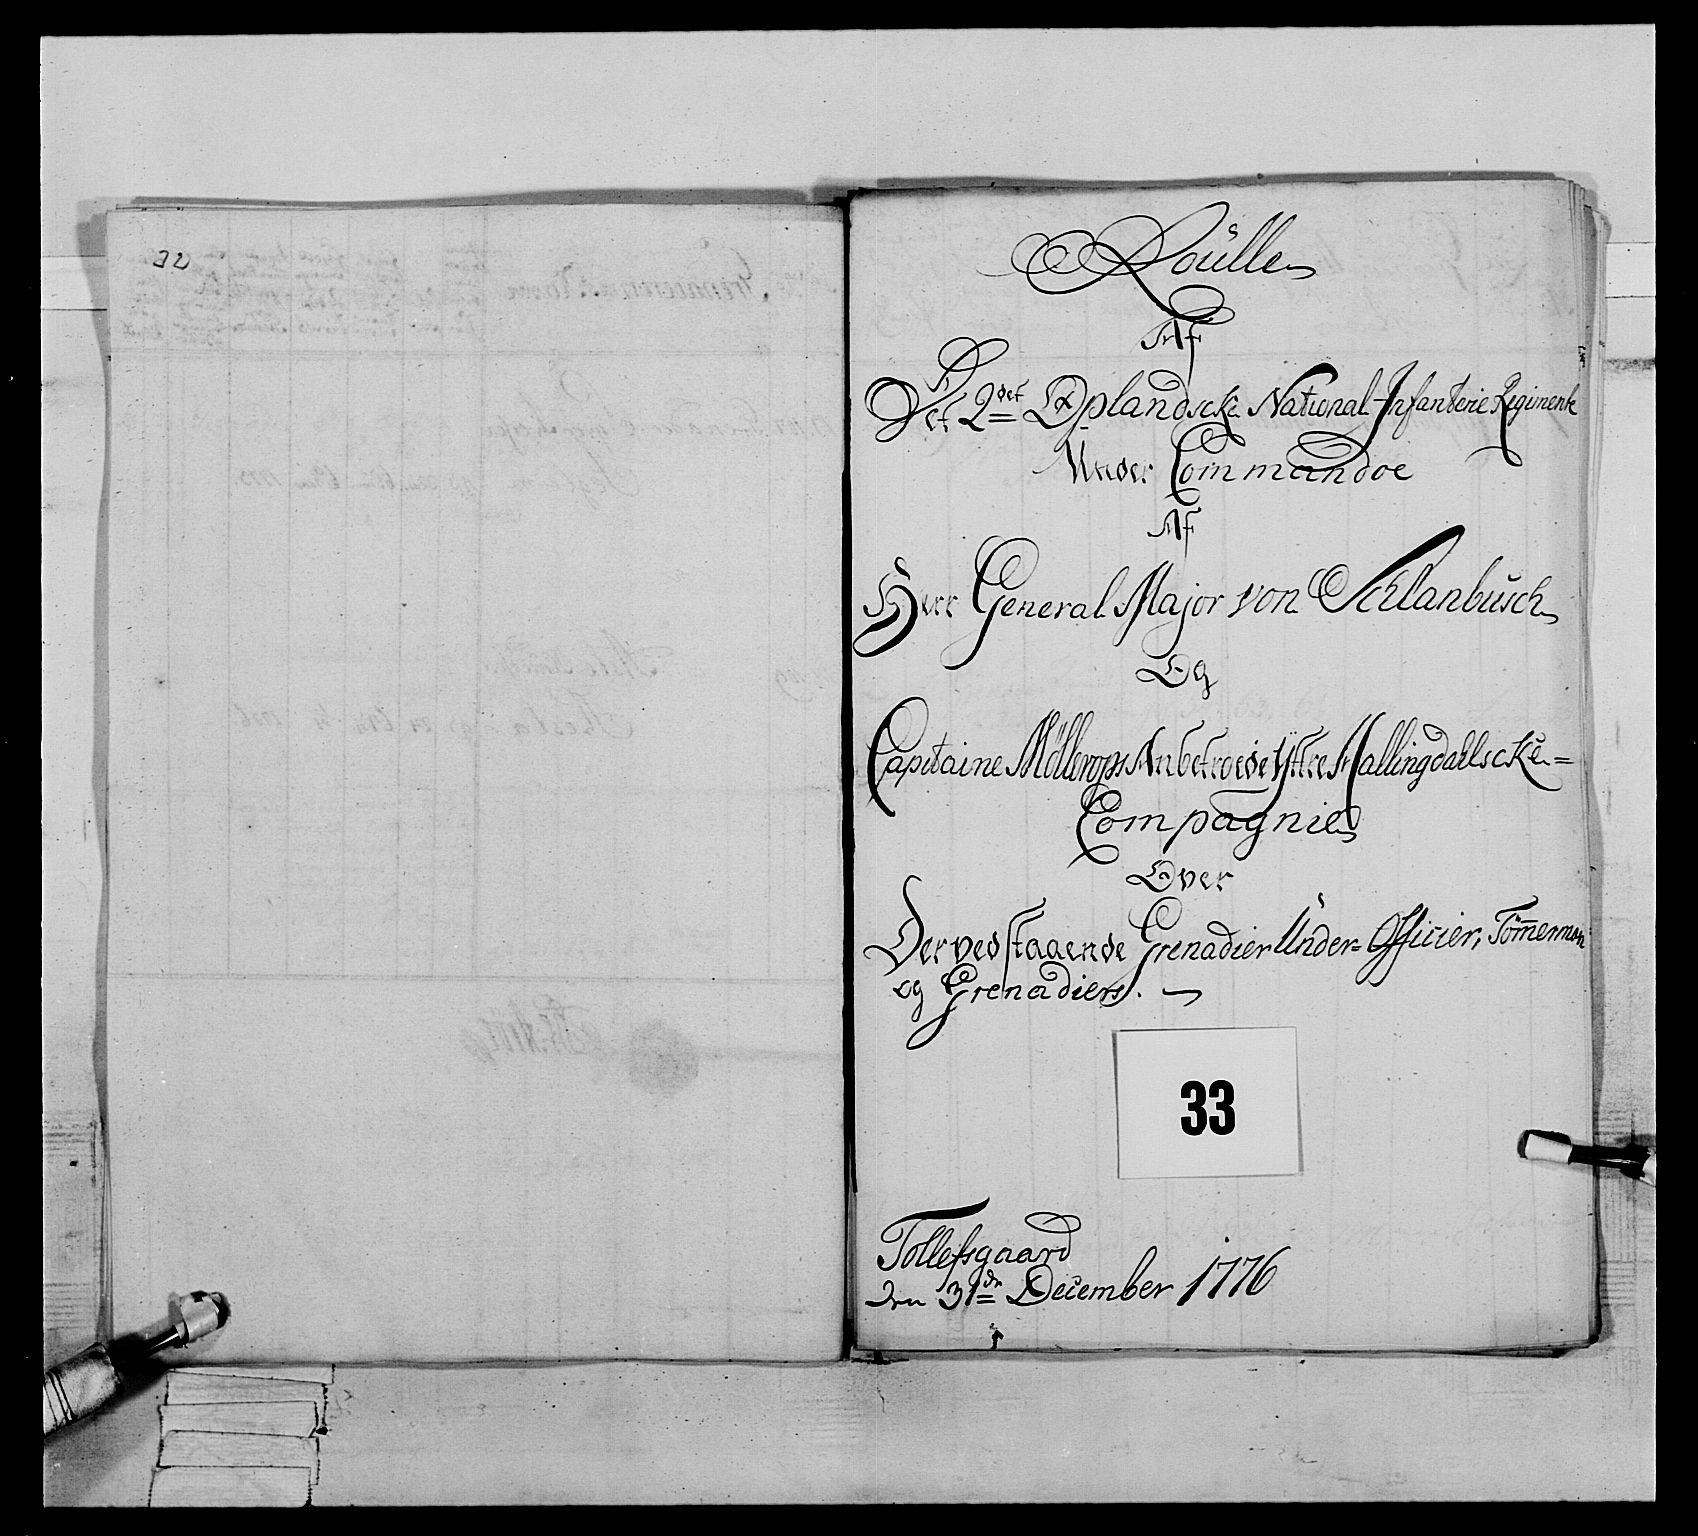 32
Roülle
Af
Det 2det Oplandscke National Infanterie Regiment
Under Commandoe
Af
Herr General Major von Schlanbüsch
Og
Capitaine Möllerops Anbetroede Ystre Hallingdahlscke
Compagnie
Over
Derved staaende Grenadier Ünder Officier, Tömmerman
og Grenadiers.
33
Tollefsgaard
den 31de December 1776